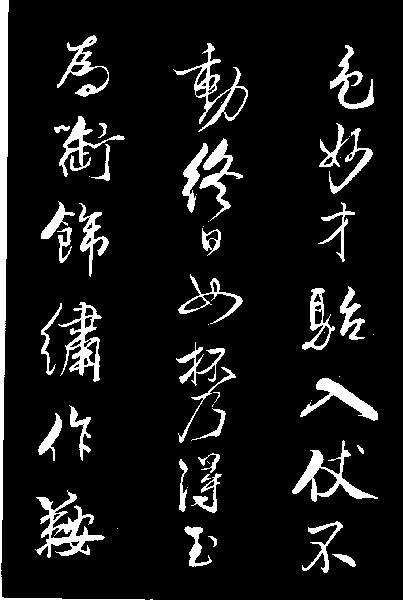 色妙才駘入仗不
動終日如杯乃得玉
為銜飾繡作鞍